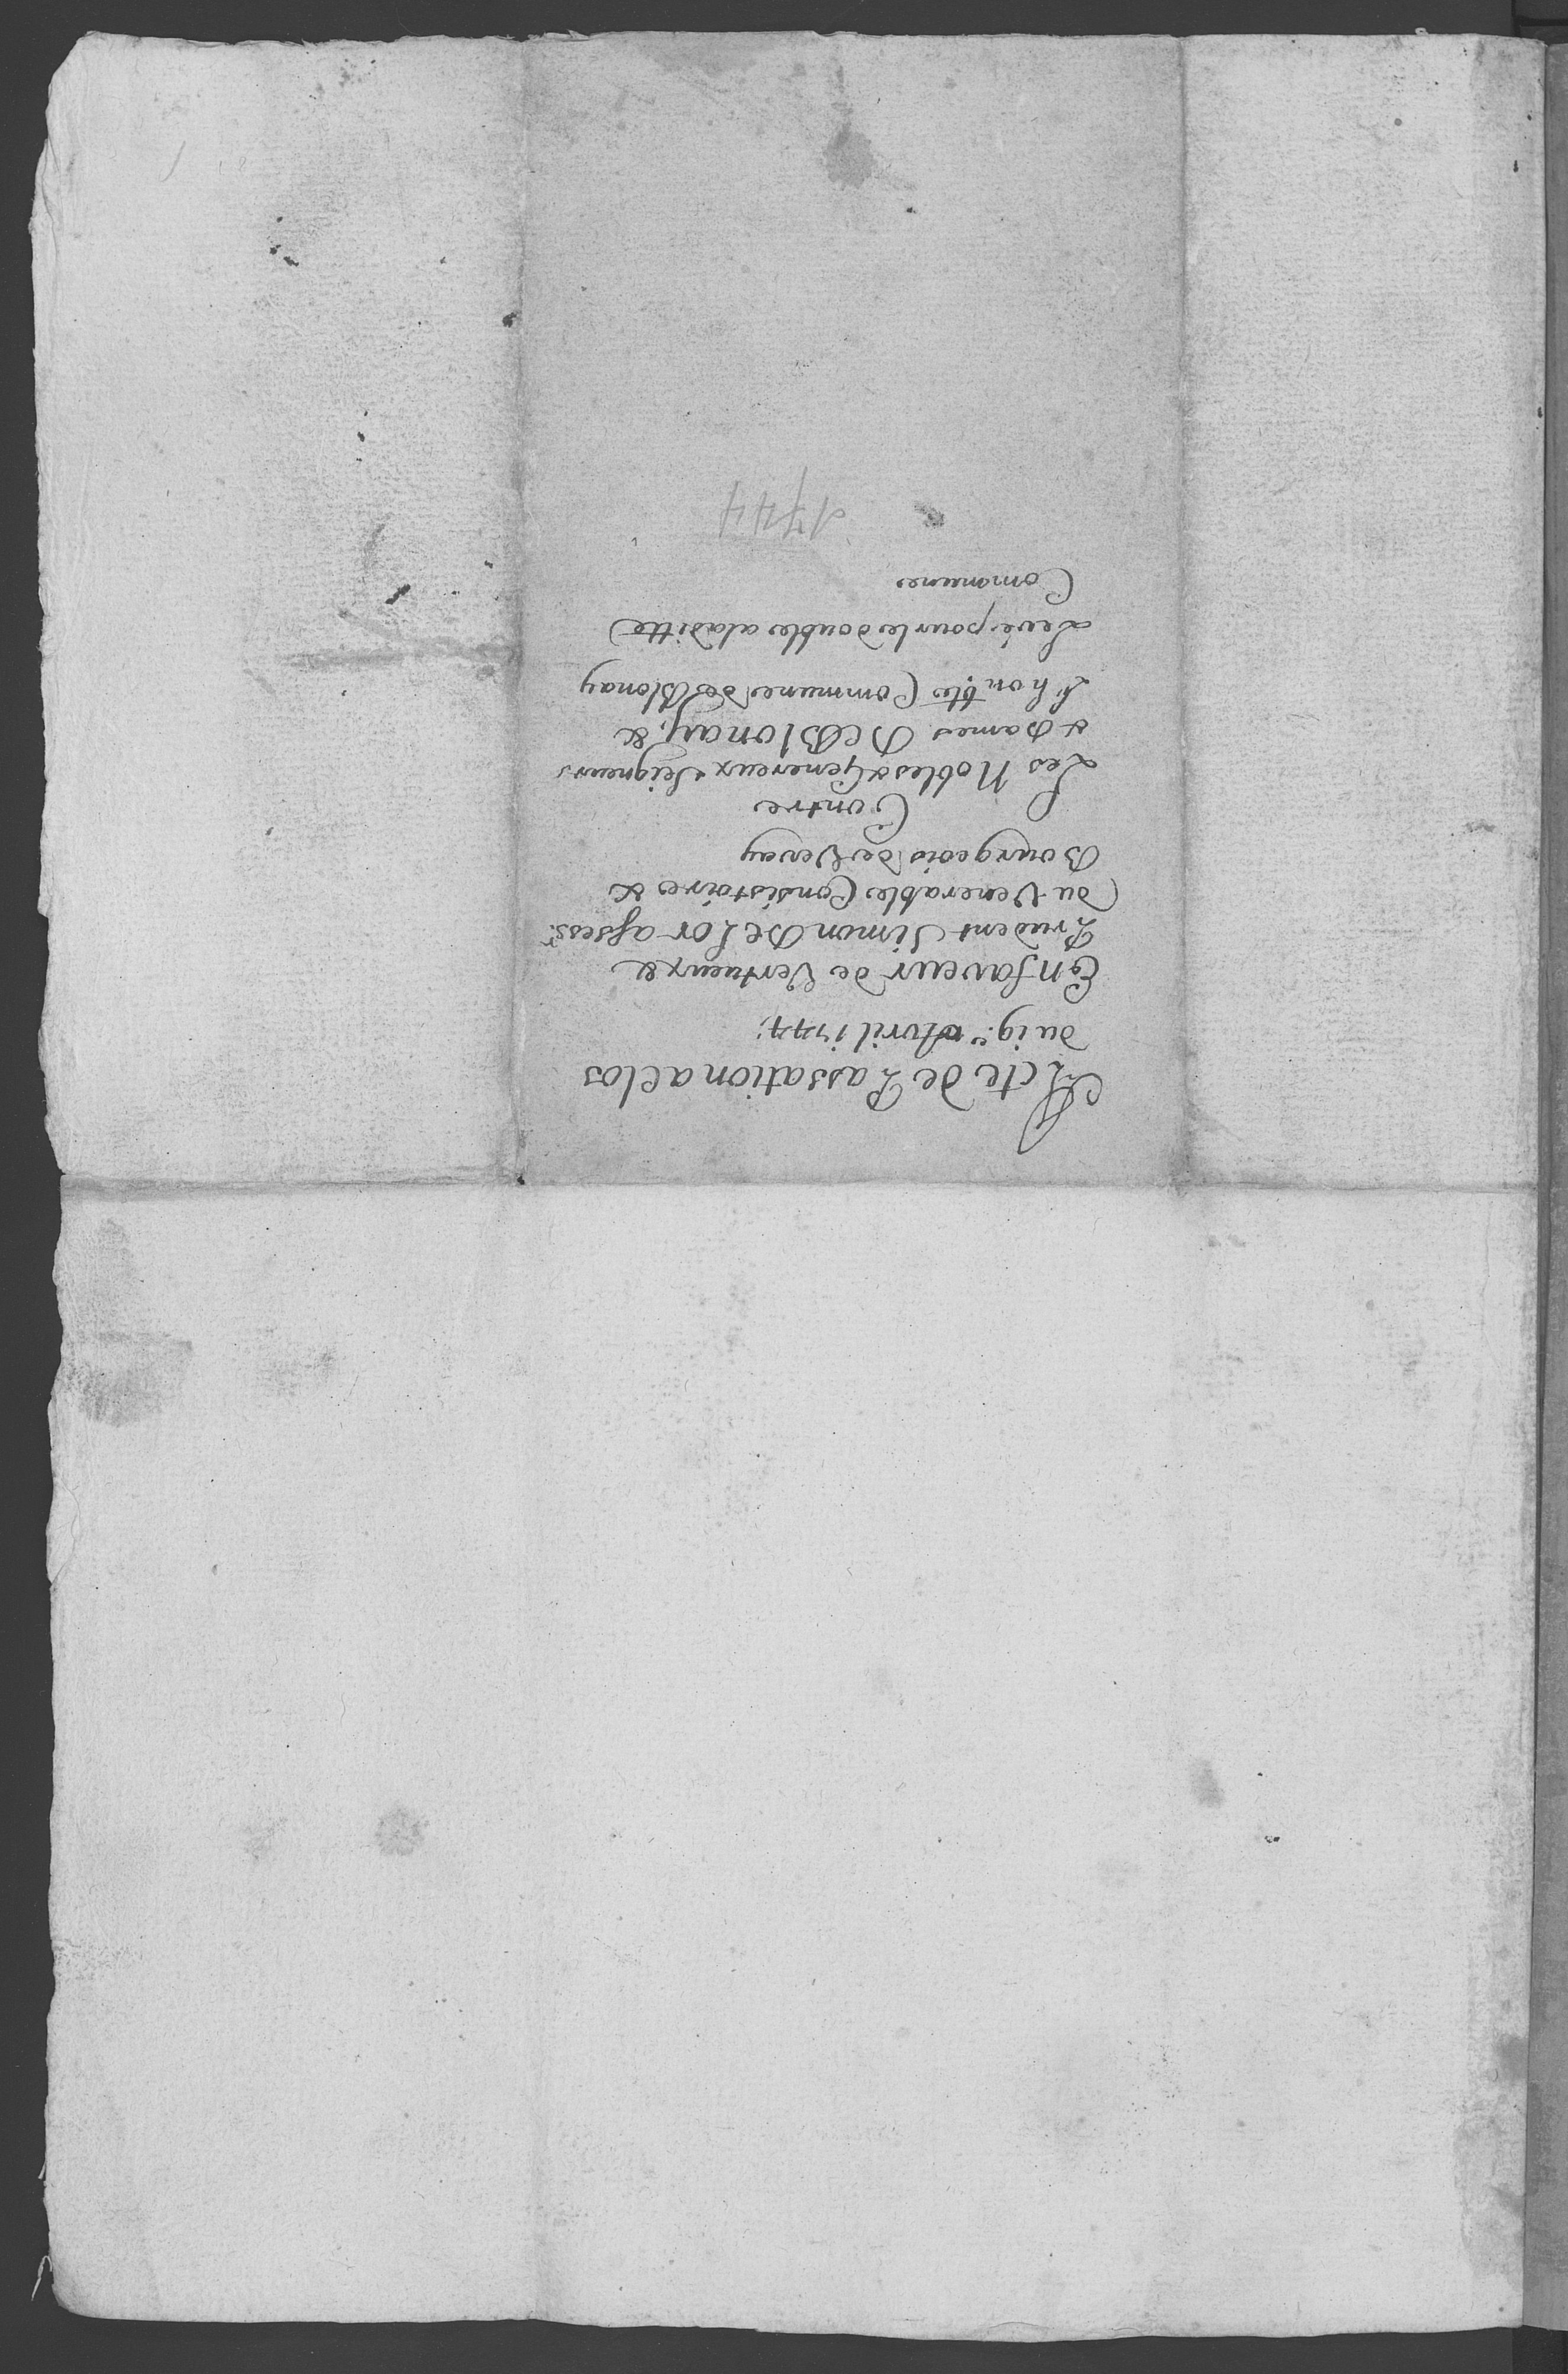 Acte de Passation a clos
du 19.e Avril 1744;
En faveur de Vertueux &
Prudent Simon DeLor assess.r
du Venerable Consistoire &
Bourgeois de Vevay
Contre
Les Nobles & Genereux Seigneurs
& Dames De Blonay, &
L'hon.ble Commune de Blonay
Levé pour le double a laditte
Commune
1744